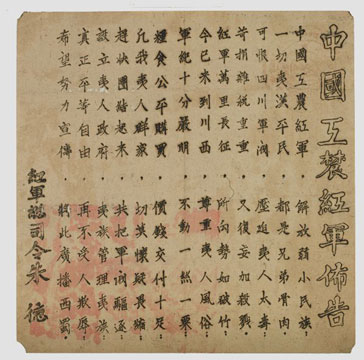 中國工農紅軍佈告
中國工農紅軍・解放弱小民族・
一切夷漢平民・都是兄弟骨肉・
可恨四川軍閥・壓迫夷人太毒・
苛捐雜稅重重・又復妄加殺戮・
紅軍萬里長征・所向勢如破竹・
今已來到川西・尊重夷人風俗・
軍紀十分嚴明・不動一絲一粟・
糧食公平購買・價錢交付十足・
凡我夷人群眾・切莫懷疑畏縮・
趕快團結起來・共把軍閥驅逐・
設立夷人政府・夷族管理夷族・
真正平等自由・再不受人欺辱・
希望努力宣傳・將此廣播西蜀・
紅軍總司令朱德